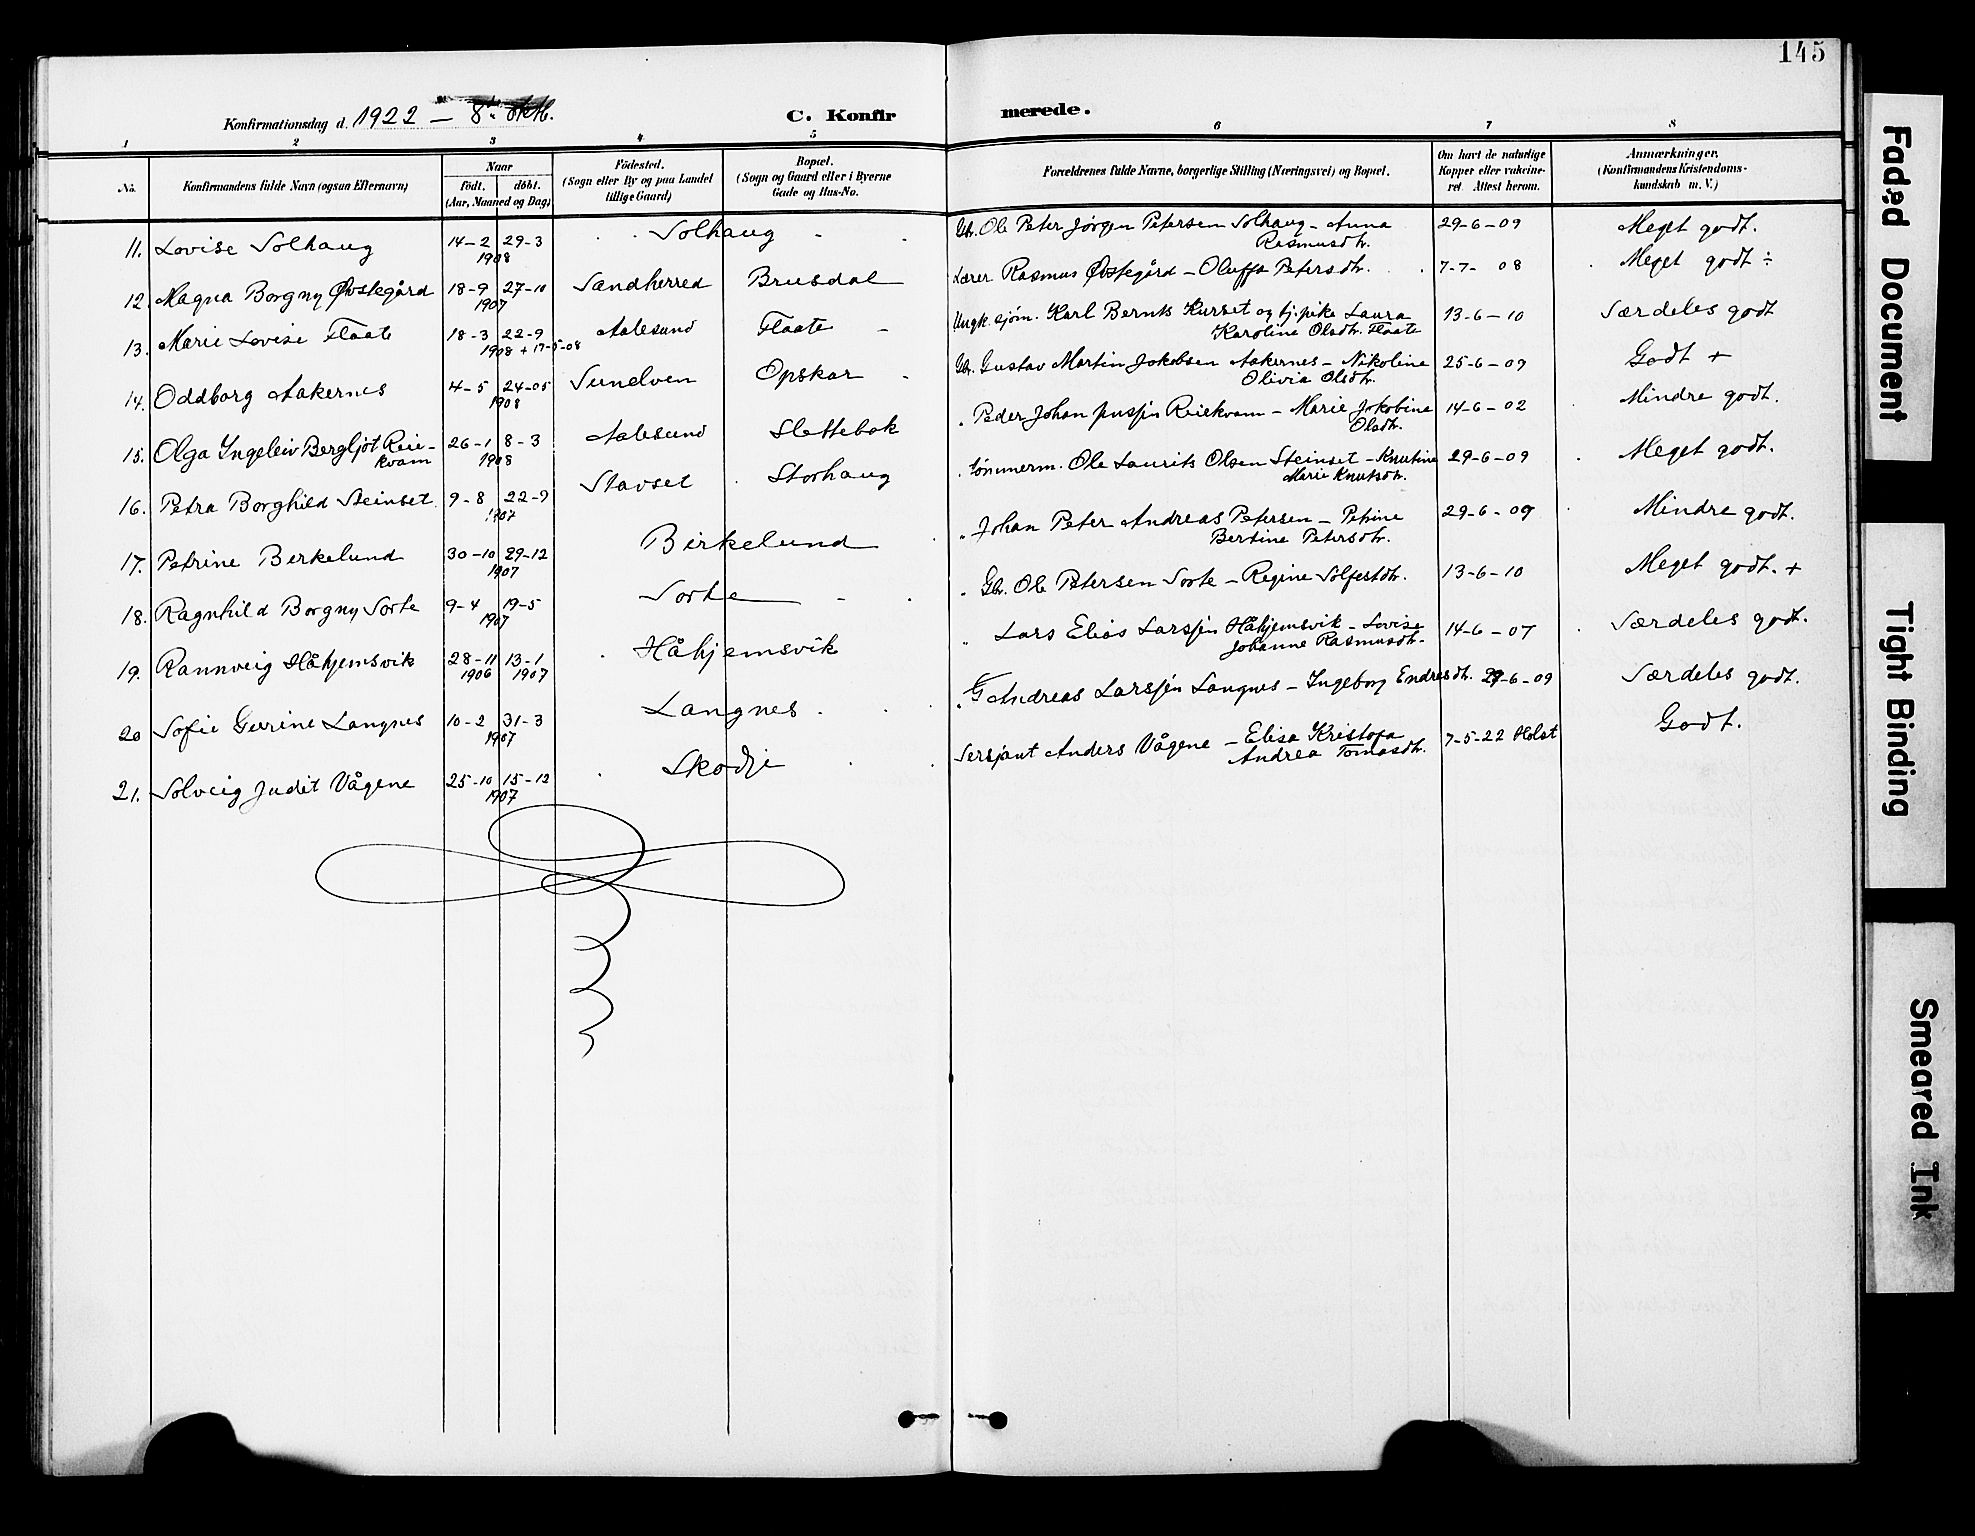 145
Konfirmationsdag d. 1922 – 8. okt.
C. Konfir merede.
1 2 3 4 5 6 7 8
No.
Konfirmandens fulde Navn (ogsaa Efternavn)
Naar
født. døbt.
(Aar, Maaned og Dag)
Fødested.
(Sogn eller By og paa Landet
tillige Gaard)
Bopæl.
(Sogn og Gaard eller i Byerne
Gade og Hus-No.
Forældrenes fulde Navne, borgerlige Stilling (Næringsvei) og Bopæl.
Om havt de naturlige
Kopper eller vakcine-
ret. Attest herom.
Anmærkninger.
(Konfirmandens Kristendoms-
kundskab m. V.)
11. Lovise Solhaug 14-2 29-3 Solhaug Gbr. Ole Peter Jørgen Petersen Solhaug – Anna 29-6-09 Meget godt.
1908 Rasmusdtr.
12. Magna Borgny Øvstegård 18-9 27-10 Sandherred Brusdal Lærer Rasmus Øvstegård – Oluffa Petersdtr. 7-7-08 Meget godt ÷
1907
13. Marie Lovise Flaate 18-3 22-9 Aalesund Flaate Ungk. sjøm. Karl Bernts Kurset og tj. pike Laura 13-6-10 Særdeles godt
1908 + 17-5-08 Karoline Olsdtr. Flaate
14. Oddborg Aakernes 4-5 24-05 Sunelven Opskar Gbr. Gustav Martin Jokobsen Aakernes – Nikoline 25-6-09 Godt +
1908 Olivia Olsdtr.
15. Olga Ingeleiv Bergljot Reie- 26-1 8-3 Aalesund Slettebak Peder Johan Reiekvam – Marie Jokobine 14-6-02 Mindre godt.
kvam 1908 Olsdtr.
16. Petra Borghild Steinset 9-8 22-9 Stavset Storhaug tømmerm. Ole Laurits Olsen Steinset – Knutine 29-6-09 Meget godt.
1907 Marie Knutsdtr.
17. Petrine Birkelund 30-10 29-12 Birkelund Johan Peter Andreas Petersen – Petrine 29-6-09 Mindre godt.
1907 Bertine Petersdtr.
18. Ragnhild Borgny Sorte 9-4 19-5 Sorte Gbr. Ole Petersen Sorte – Regine Solfestdtr. 13-6-10 Meget godt. +
1907
19. Rannveig Håhjemsvik 28-11 13-1 Håhjemsvik Lars Elias Larssen Håhjemsvik – Lovise 14-6-07 Særdeles godt.
1906 1907 Johanne Rasmusdtr.
20 Sofie Gurine Langnes 10-2 31-3 Langnes G Andreas Larssen Langnes – Ingeborg Endresdtr. 29-6-09 Særdeles godt.
1907
21. Solveig Judit Vågene 25-10 15-12 Skodje Sersjant Anders Vågene – Elisa Kristofa 7-5-22 Holst Godt.
1907 Andrea Tomasdtr.
Faded Document
Tight Binding
Smeared Ink